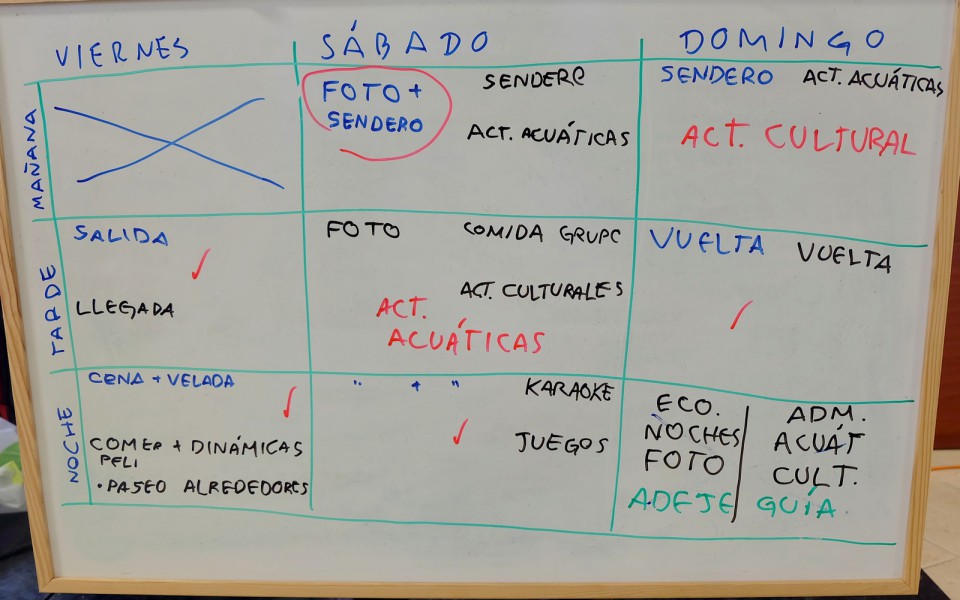 VIERNES
SÁBADO
DOMINGO
MAÑANA
FOTO +
SENDERO
SENDERO
ACT. ACUÁTICAS
SENDERO ACT. ACUÁTICAS
ACT. CULTURAL
TARDE
SALIDA
LLEGADA
FOTO COMIDA GRUPO
ACT. CULTURALES
ACT.
ACUÁTICAS
VUELTA VUELTA
NOCHE
CENA + VELADA
COMER + DINÁMICAS
PELI
• PASEO ALREDEDORES
" + "
KARAOKE
JUEGOS
ECO.
NOCHES
FOTO
ADEJE
ADM.
ACUÁT
CULT.
GUÍA.